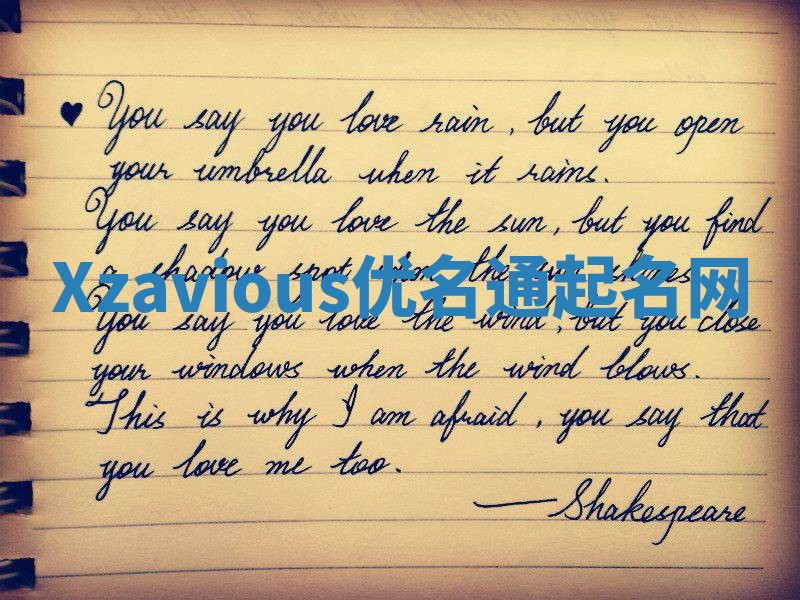 ♥ You say you love rain, but you open
your umbrella when it rains.
You say you love the sun, but you find
a shadow spot when the sun shines.
Xzavious优名通起名网
You say you love the wind, but you close
your windows when the wind blows.
This is why I am afraid, you say that
you love me too.
— Shakespeare